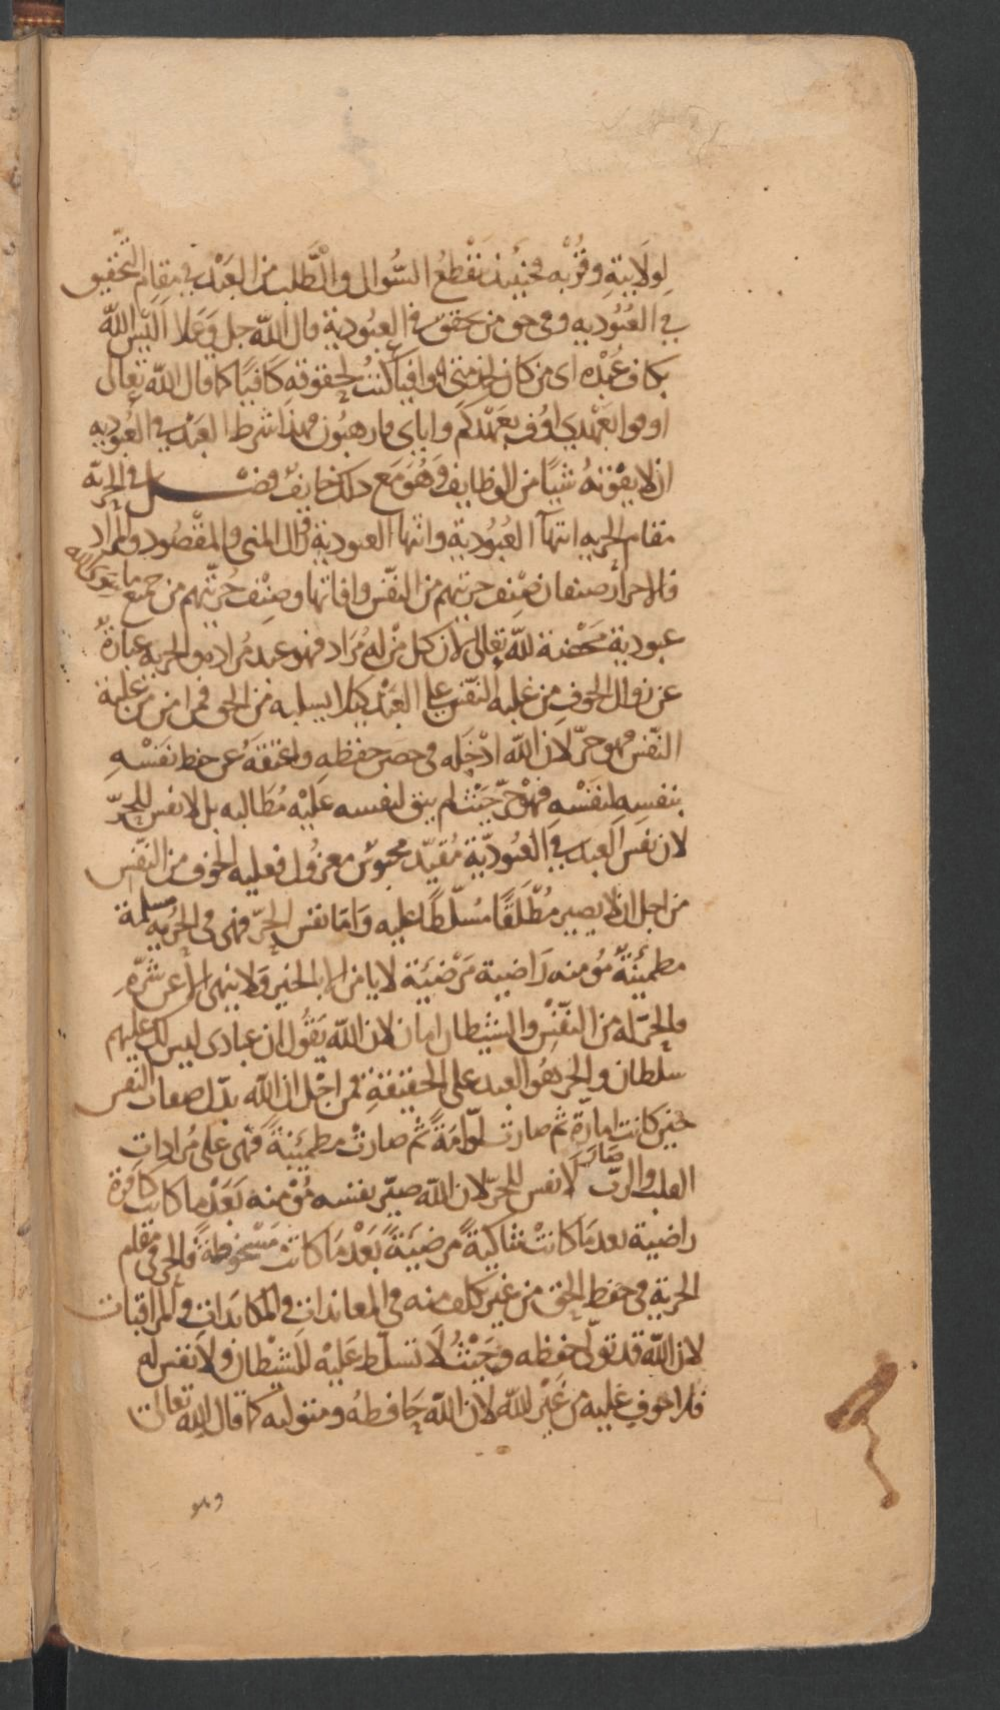 لِولَايتِهِ وقُرْبه فحينَئِذ ينَقْطِعُ السُّوال والطَّلب من العَبْد في مقام التحَّقيق
في العُبُوديه وفي حق من تحقق في العبُودية قال الله جل وَعَلا اليّس الله
بكاف عَبْده اى من كان لخدمتى وافيًا كنتُ لحقوقه كَافيًا كما قال الله تعالى
اوفوا بعَهْدي اوُف بعَهْدكم واياى فارهبُون فهذا شرط العَبْد في العُبوديه
ان لا يفْوتهُ شيًا من الوظايف وَهُوَ مَع ذلك خايفٌ فصْــل في الحريّه
مقام الحريه انتهآ العُبُوديةِ وانتها العبودية زوال المنى والمقْصُود والمراد
فالاحرار صنفان صِنْف حريتهم من النفّس وافاتها وصِنْف حُريّتهم من جميع ما سِوى الله
عبودية مَحْضة للهّ تعالى لان كل مْن له مُرَاد فهو عبد مُراده والحرية عبارةٌ
عن زوال الخوفِ مِن غلبة النّفس على العَبْد كيلا يسلبه من الحق فمن امن من غلبة
النّفس فهو حرّ لان الله ادْخَله فى حصن حفظهِ واعتقَهُ عن حظ نَفسْهِ
بنفسِهِ لنفَسْهِ فهوْ حرّ حَيْث لم يبق لنفسه عَليْه مُطَالبه بل لا نفس للحرّ
لان نفس العبد في العبُوديّة مُقيدّ محبوسٌ معزول فعليه الخوف من النفّس
من اجل ان لا يصير مُطْلَقًا مسُلّطًا عليه وَامّا نفس الحرّ فهى فى الحريه مسلمة
مطمئنَّةٌ مُومنه رَاضية مَرْضيَّة لا يامن الا بالخير وَلا ينهى الا عن شَرّهِ
والحرّ له من النفّسْ والشيطان امان لان الله يَقُول ان عبادى ليس لك عليهم
سلطان والحر هُو العبد على الحقيقة فمن اجْل ان الله بدّل صفات النفس
حَين كانت امارةً ثم صارت لوّامَةً ثُم صارتْ مطمئنةً فهى على مُرادات
القلب والربّ صارت لا نفس للحرّ لان الله صيّر نفسه مُؤمنه بَعَدْ ما كانت كافرة
راضية بعد مَا كانتْ شاكيةً مرضيَةً بَعَدْ مَا كانت مَسْخُوطَةً والحر فى مقام
الحرية فى حفظ الحق من غير كلف منه فى المعاندات والمكابدات والمراقبات
لان الله قد تولّى حفظه وحَيْثُ لَا تسلّط عَليْه للشيْطان ولاَ نفس له
فلا خوف عليه من غَيْر لله لان الله حَافظهُ ومتوليه كما قال الله تعالى
وهو